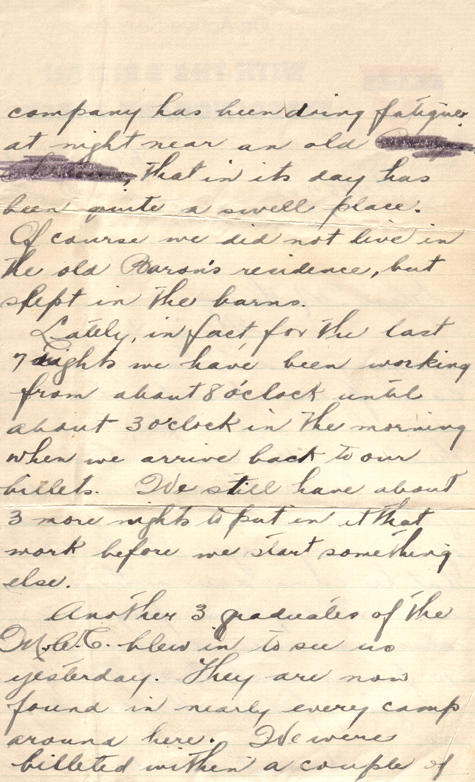 company has been doing fatigues
at night near an old
, that in its day has
been quite a swell place.
Of course we did not live in
the old Baron's residence, but
slept in the barns.
Lately, in fact for the last
7 nights we have been working
from about 8 o'clock until
about 3 o'clock in the morning
when we arrive back to our
billets. We still have about
3 more nights to put in at that
work before we start something
else.
Another 3 graduates of the
blew in to see us
yesterday. They are now
found in nearly every camp
around here. We were
billeted within a couple of